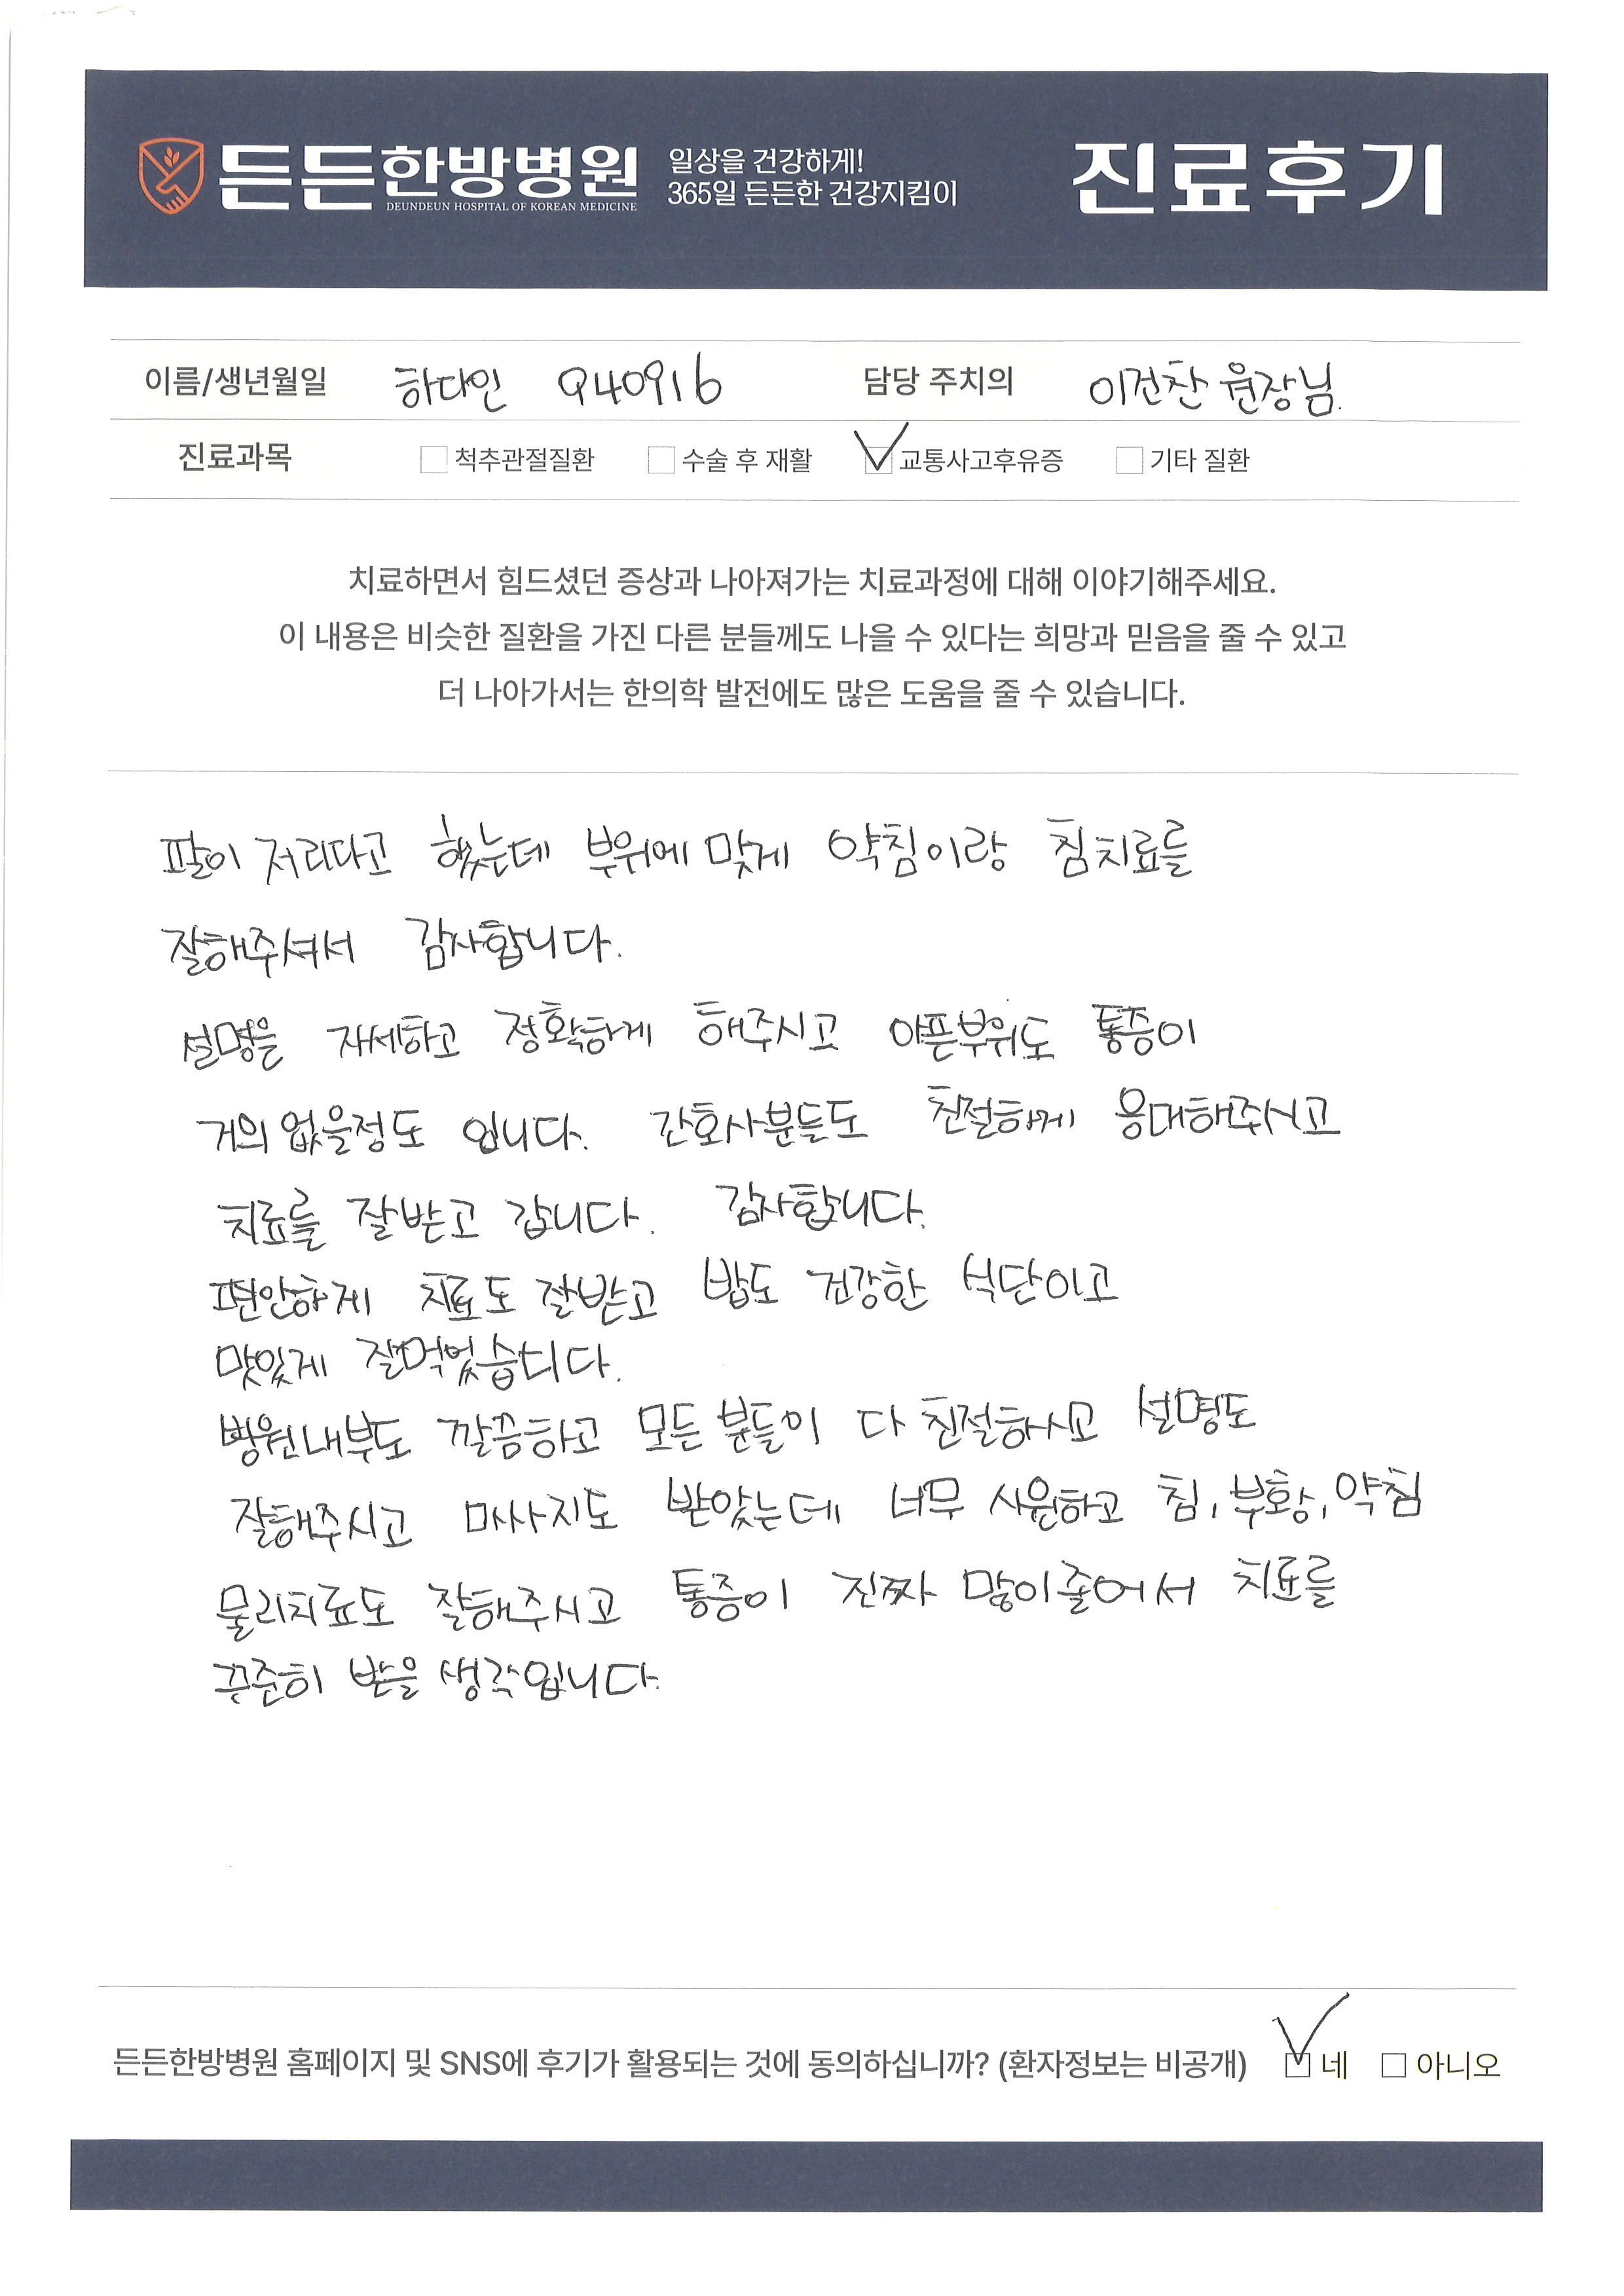 든든한방병원
DEUNDEUN HOSPITAL OF KOREAN MEDICINE
일상을 건강하게!
365일 든든한 건강지킴이
진료후기
이름/생년월일 하다인 940916 담당 주치의 이건찬 원장님.
진료과목 척추관절질환 수술 후 재활 교통사고후유증 기타 질환
치료하면서 힘드셨던 증상과 나아져가는 치료과정에 대해 이야기해주세요.
이 내용은 비슷한 질환을 가진 다른 분들께도 나을 수 있다는 희망과 믿음을 줄 수 있고
더 나아가서는 한의학 발전에도 많은 도움을 줄 수 있습니다.
팔이 저리다고 했는데 부위에 맞게 약침이랑 침치료를
잘해주셔서 감사합니다.
설명을 자세하고 정확하게 해주시고 아픈부위도 통증이
거의 없을정도 입니다. 간호사분들도 친절하게 응대해주시고
치료를 잘받고 갑니다. 감사합니다.
편안하게 치료도 잘받고 밥도 건강한 식단이고
맛있게 잘먹었습니다.
병원내부도 깔끔하고 모든 분들이 다 친절하시고 설명도
잘해주시고 마사지도 받았는데 너무 시원하고 침, 부항, 약침
물리치료도 잘해주시고 통증이 진짜 많이줄어서 치료를
꾸준히 받을 생각입니다.
든든한방병원 홈페이지 및 SNS에 후기가 활용되는 것에 동의하십니까? (환자정보는 비공개) 네 아니오